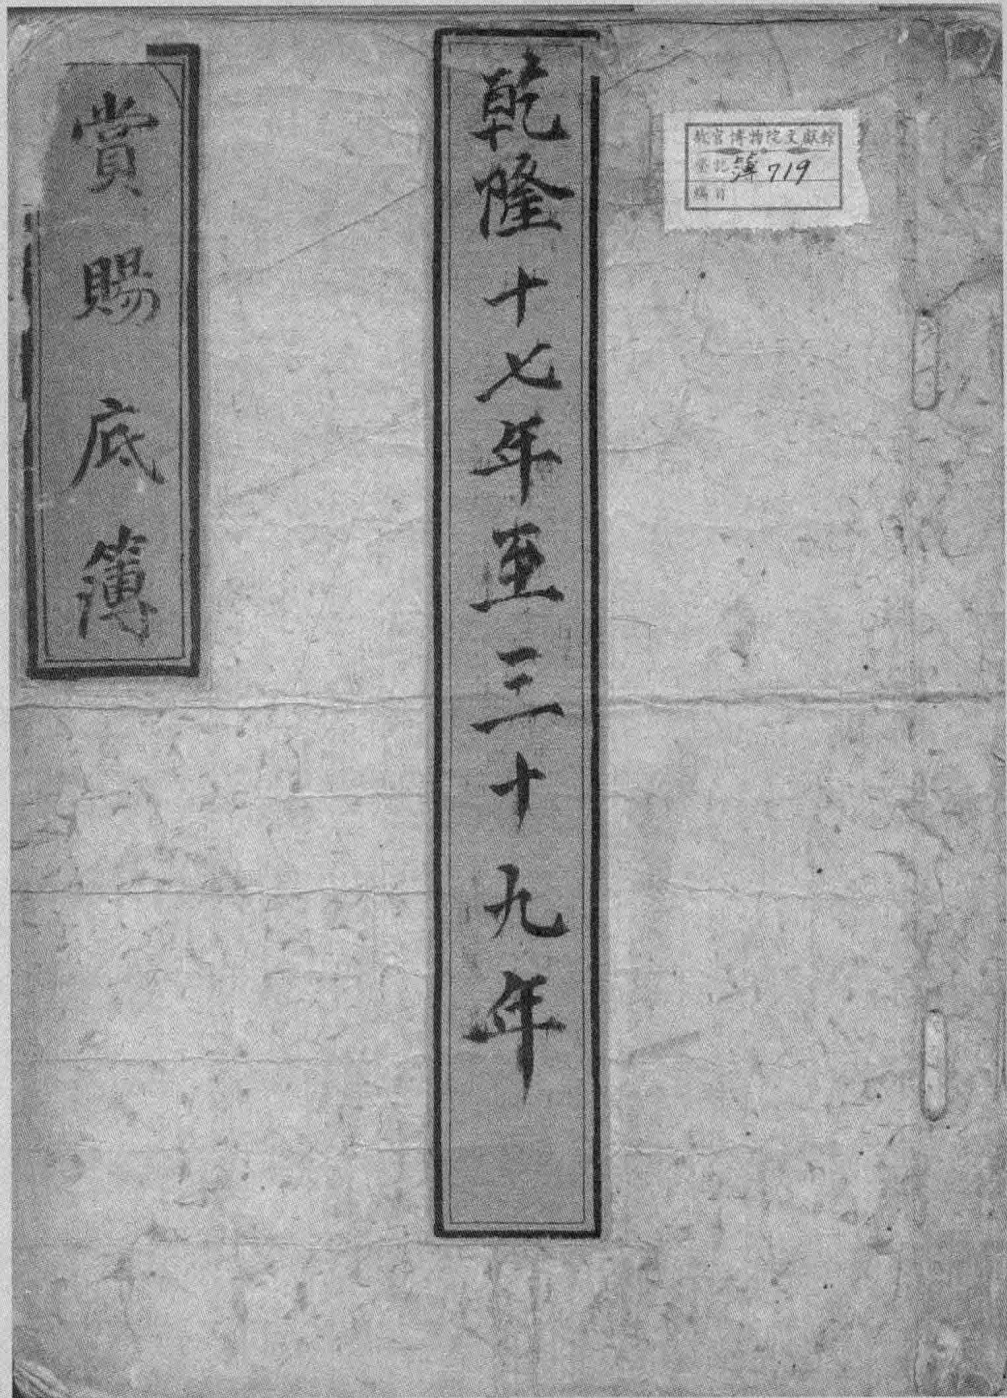 故宮博物院文獻館
登記 簿 719
編目
乾隆十七年至三十九年
賞賜底簿